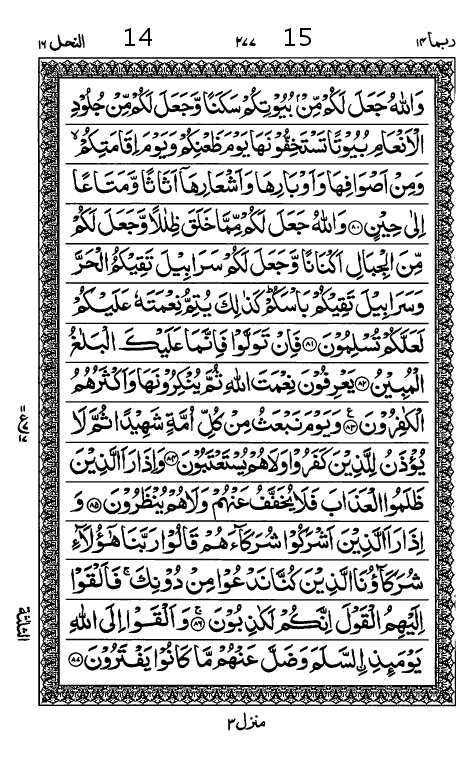 ربما ۱۴ 15 ۲۷۷ 14 النحل ۱۶
وَاللّٰهُ جَعَلَ لَكُمْ مِّنْۢ بُيُوْتِكُمْ سَكَنًا وَّجَعَلَ لَكُمْ مِّنْ جُلُوْدِ
الْاَنْعَامِ بُيُوْتًا تَسْتَخِفُّوْنَهَا يَوْمَ ظَعْنِكُمْ وَيَوْمَ اِقَامَتِكُمْ ۙ
وَمِنْ اَصْوَافِهَا وَاَوْبَارِهَا وَاَشْعَارِهَاۤ اَثَاثًا وَّمَتَاعًا
اِلٰى حِيْنٍ ﴿۸۰﴾ وَاللّٰهُ جَعَلَ لَكُمْ مِّمَّا خَلَقَ ظِلٰلًا وَّجَعَلَ لَكُمْ
مِّنَ الْجِبَالِ اَكْنَانًا وَّجَعَلَ لَكُمْ سَرَابِيْلَ تَقِيْكُمُ الْحَرَّ
وَسَرَابِيْلَ تَقِيْكُمْ بَاْسَكُمْ ؕ كَذٰلِكَ يُتِمُّ نِعْمَتَهٗ عَلَيْكُمْ
لَعَلَّكُمْ تُسْلِمُوْنَ ﴿۸۱﴾ فَاِنْ تَوَلَّوْا فَاِنَّمَا عَلَيْكَ الْبَلٰغُ
الْمُبِيْنُ ﴿۸۲﴾ يَعْرِفُوْنَ نِعْمَتَ اللّٰهِ ثُمَّ يُنْكِرُوْنَهَا وَاَكْثَرُهُمُ
الْكٰفِرُوْنَ ﴿۸۳﴾ ع وَيَوْمَ نَبْعَثُ مِنْ كُلِّ اُمَّةٍ شَهِيْدًا ثُمَّ لَا
يُؤْذَنُ لِلَّذِيْنَ كَفَرُوْا وَلَا هُمْ يُسْتَعْتَبُوْنَ ﴿۸۴﴾ وَاِذَا رَاَ الَّذِيْنَ
ظَلَمُوا الْعَذَابَ فَلَا يُخَفَّفُ عَنْهُمْ وَلَا هُمْ يُنْظَرُوْنَ ﴿۸۵﴾ وَ
اِذَا رَاَ الَّذِيْنَ اَشْرَكُوْا شُرَكَآءَهُمْ قَالُوْا رَبَّنَا هٰۤؤُلَآءِ
شُرَكَآؤُنَا الَّذِيْنَ كُنَّا نَدْعُوْا مِنْ دُوْنِكَ ۚ فَاَلْقَوْا
اِلَيْهِمُ الْقَوْلَ اِنَّكُمْ لَكٰذِبُوْنَ ﴿۸۶﴾ ۚ وَاَلْقَوْا اِلَى اللّٰهِ
يَوْمَئِذِ ۨالسَّلَمَ وَضَلَّ عَنْهُمْ مَّا كَانُوْا يَفْتَرُوْنَ ﴿۸۷﴾
الثلٰثة
منزل ۳